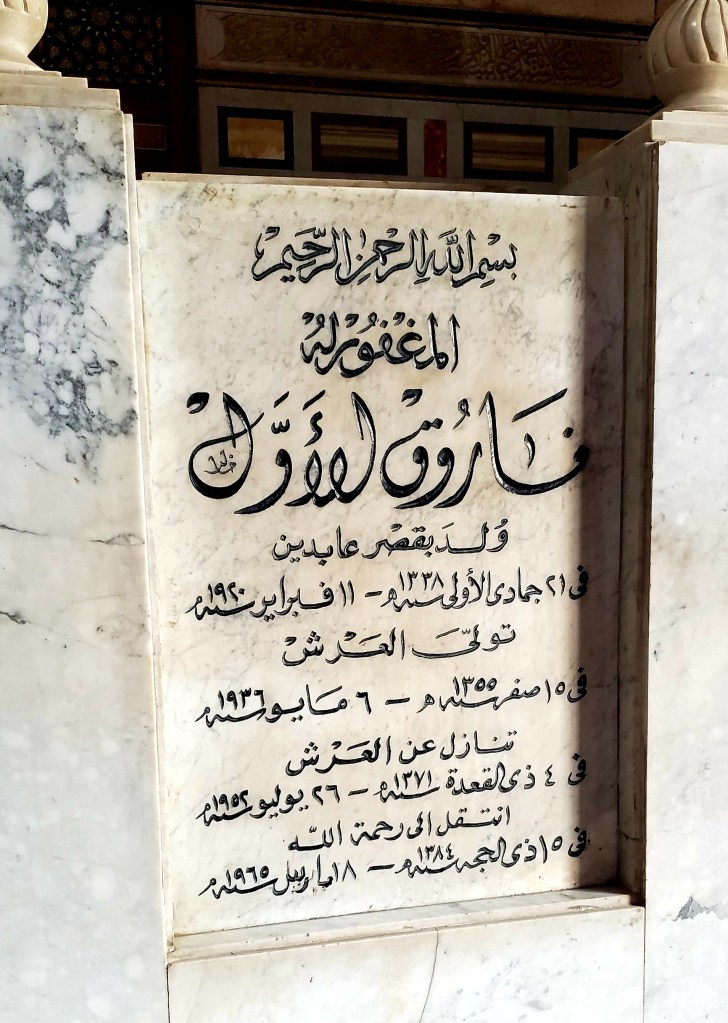 بِسْمِ اللَّهِ الرَّحْمٰنِ الرَّحِيْمِ
المَغْفُوْرلَهُ
فَارُوْق الأَوَّل
وُلِدَ بقَصْر عابدين
فى ٢١ جمادى الأولى سنة ١٣٣٨ هـ - ١١ فبراير سنة ١٩٢٠ م
تولّىَ العَرْش
فى ١٥ صفر سنة ١٣٥٥ هـ - ٦ مَايو سنة ١٩٣٦ م
تنازل عن العَرْش
فى ٤ ذى القعدة سنة ١٣٧١ هـ - ٢٦ يوليو سنة ١٩٥٢ م
انتقل الى رحمة اللّه
فى ١٥ ذى الحجه سنة ١٣٨٤ هـ - ١٨ مارس سنة ١٩٦٥ م